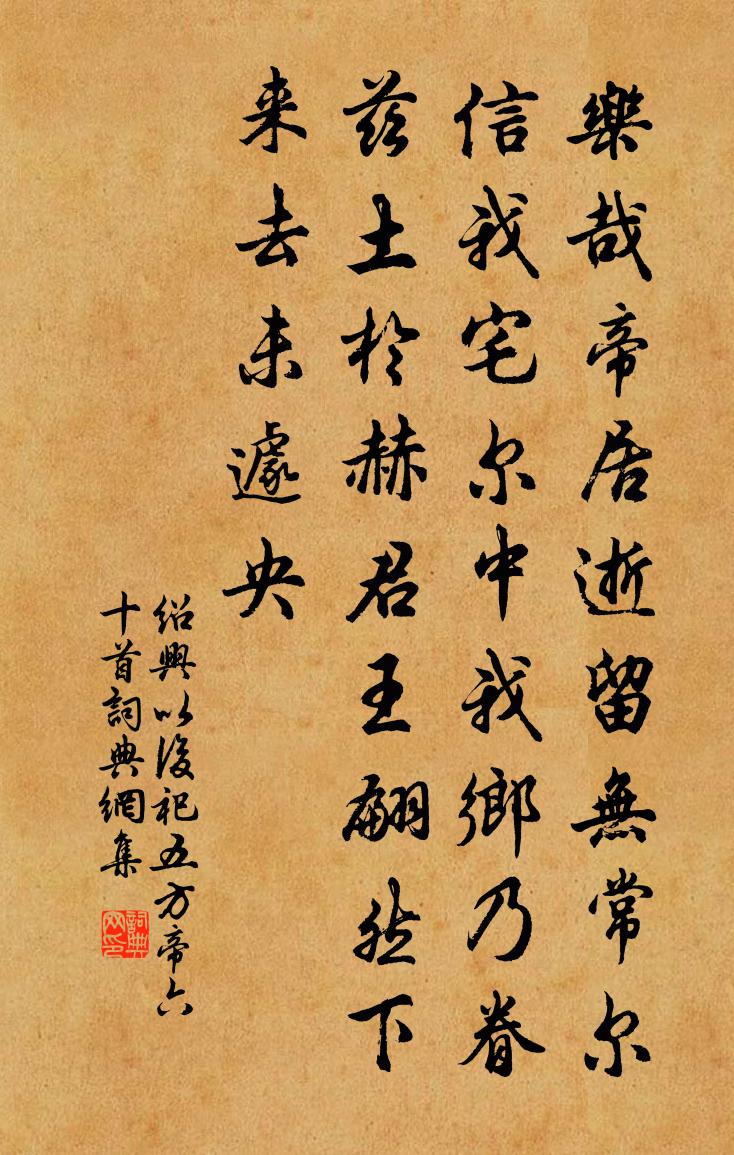 樂哉帝居逝留無常尔
信我宅尔中我鄉乃眷
兹土於赫君王翩然下
来去未遽央
绍興以後祀五方帝六
十首詞典網集
詞典网印